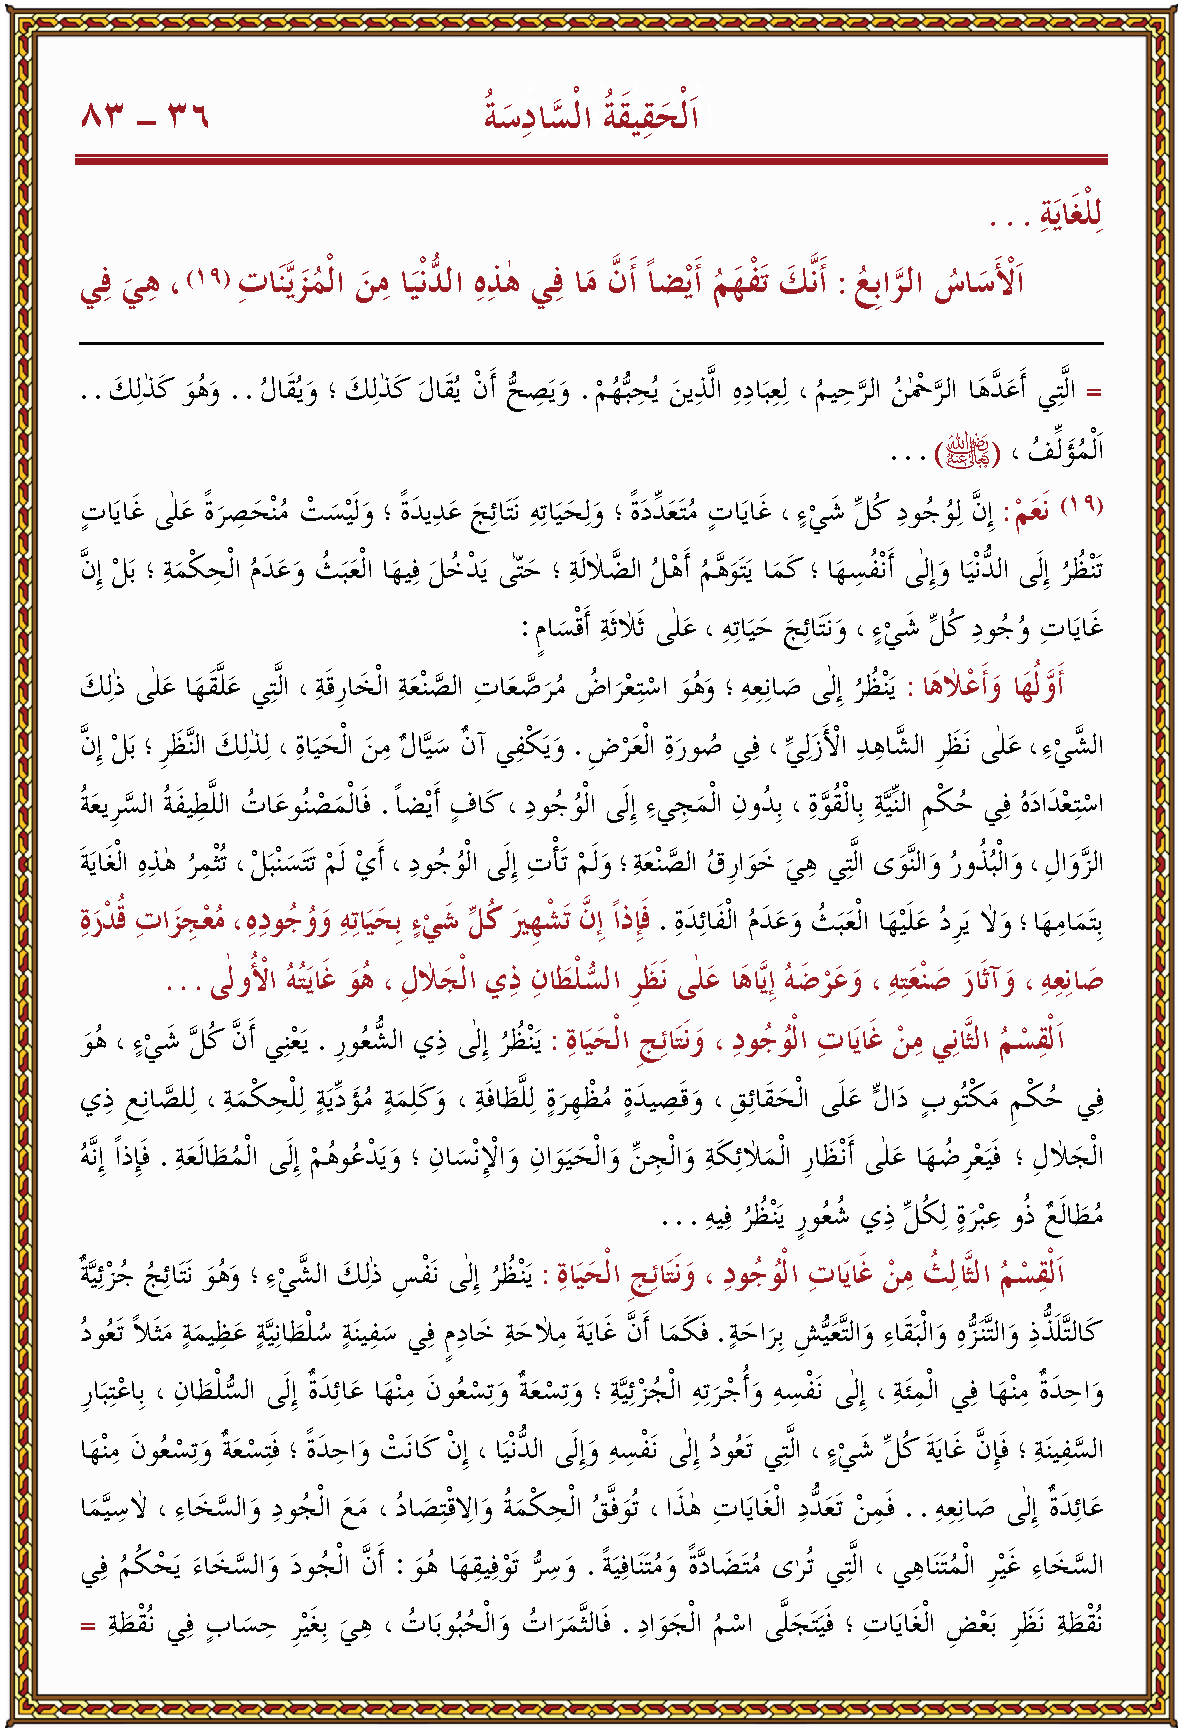 اَلْحَقِيقَةُ السَّادِسَةُ ٣٦ – ٨٣
لِلْغَايَةِ . . .
اَلْأَسَاسُ الرَّابِعُ : أَنَّكَ تَفْهَمُ أَيْضاً أَنَّ مَا فِي هٰذِهِ الدُّنْيَا مِنَ الْمُزَيَّنَاتِ (١٩) ، هِيَ فِي
= الَّتِي أَعَدَّهَا الرَّحْمٰنُ الرَّحِيمُ ، لِعِبَادِهِ الَّذِينَ يُحِبُّهُمْ . وَيَصِحُّ أَنْ يُقَالَ كَذٰلِكَ ؛ وَيُقَالُ . . وَهُوَ كَذٰلِكَ . .
اَلْمُؤَلِّفُ ، (رضي الله تعالى عنه) . . .
(١٩) نَعَمْ : إِنَّ لِوُجُودِ كُلِّ شَيْءٍ ، غَايَاتٍ مُتَعَدِّدَةً ؛ وَلِحَيَاتِهِ نَتَائِجَ عَدِيدَةً ؛ وَلَيْسَتْ مُنْحَصِرَةً عَلٰى غَايَاتٍ
تَنْظُرُ إِلَى الدُّنْيَا وَإِلٰى أَنْفُسِهَا ؛ كَمَا يَتَوَهَّمُ أَهْلُ الضَّلَالَةِ ؛ حَتّٰى يَدْخُلَ فِيهَا الْعَبَثُ وَعَدَمُ الْحِكْمَةِ ؛ بَلْ إِنَّ
غَايَاتِ وُجُودِ كُلِّ شَيْءٍ ، وَنَتَائِجَ حَيَاتِهِ ، عَلٰى ثَلَاثَةِ أَقْسَامٍ :
أَوَّلُهَا وَأَعْلَاهَا : يَنْظُرُ إِلٰى صَانِعِهِ ؛ وَهُوَ اسْتِعْرَاضُ مُرَصَّعَاتِ الصَّنْعَةِ الْخَارِقَةِ ، الَّتِي عَلَّقَهَا عَلٰى ذٰلِكَ
الشَّيْءِ ، عَلٰى نَظَرِ الشَّاهِدِ الْأَزَلِيِّ ، فِي صُورَةِ الْعَرْضِ . وَيَكْفِي آنٌ سَيَّالٌ مِنَ الْحَيَاةِ ، لِذٰلِكَ النَّظَرِ ؛ بَلْ إِنَّ
اسْتِعْدَادَهُ فِي حُكْمِ النِّيَّةِ بِالْقُوَّةِ ، بِدُونِ الْمَجِيءِ إِلَى الْوُجُودِ ، كَافٍ أَيْضاً . فَالْمَصْنُوعَاتُ اللَّطِيفَةُ السَّرِيعَةُ
الزَّوَالِ ، وَالْبُذُورُ وَالنَّوَى الَّتِي هِيَ خَوَارِقُ الصَّنْعَةِ ؛ وَلَمْ تَأْتِ إِلَى الْوُجُودِ ، أَيْ لَمْ تَتَسَنْبَلْ ، تُثْمِرُ هٰذِهِ الْغَايَةَ
بِتَمَامِهَا ؛ وَلَا يَرِدُ عَلَيْهَا الْعَبَثُ وَعَدَمُ الْفَائِدَةِ . فَإِذاً إِنَّ تَشْهِيرَ كُلِّ شَيْءٍ بِحَيَاتِهِ وَوُجُودِهِ ، مُعْجِزَاتِ قُدْرَةِ
صَانِعِهِ ، وَآثَارَ صَنْعَتِهِ ، وَعَرْضَهُ إِيَّاهَا عَلٰى نَظَرِ السُّلْطَانِ ذِي الْجَلَالِ ، هُوَ غَايَتُهُ الْأُولٰى . . .
اَلْقِسْمُ الثَّانِي مِنْ غَايَاتِ الْوُجُودِ ، وَنَتَائِجِ الْحَيَاةِ : يَنْظُرُ إِلٰى ذِي الشُّعُورِ . يَعْنِي أَنَّ كُلَّ شَيْءٍ ، هُوَ
فِي حُكْمِ مَكْتُوبٍ دَالٍّ عَلَى الْحَقَائِقِ ، وَقَصِيدَةٍ مُظْهِرَةٍ لِلَّطَافَةِ ، وَكَلِمَةٍ مُؤَدِّيَةٍ لِلْحِكْمَةِ ، لِلصَّانِعِ ذِي
الْجَلَالِ ؛ فَيَعْرِضُهَا عَلٰى أَنْظَارِ الْمَلَائِكَةِ وَالْجِنِّ وَالْحَيَوَانِ وَالْإِنْسَانِ ؛ وَيَدْعُوهُمْ إِلَى الْمُطَالَعَةِ . فَإِذاً إِنَّهُ
مُطَالَعٌ ذُو عِبْرَةٍ لِكُلِّ ذِي شُعُورٍ يَنْظُرُ فِيهِ . . .
اَلْقِسْمُ الثَّالِثُ مِنْ غَايَاتِ الْوُجُودِ ، وَنَتَائِجِ الْحَيَاةِ : يَنْظُرُ إِلٰى نَفْسِ ذٰلِكَ الشَّيْءِ ؛ وَهُوَ نَتَائِجُ جُزْئِيَّةٌ
كَالتَّلَذُّذِ وَالتَّنَزُّهِ وَالْبَقَاءِ وَالتَّعَيُّشِ بِرَاحَةٍ . فَكَمَا أَنَّ غَايَةَ مِلَاحَةِ خَادِمٍ فِي سَفِينَةٍ سُلْطَانِيَّةٍ عَظِيمَةٍ مَثَلاً تَعُودُ
وَاحِدَةٌ مِنْهَا فِي الْمِئَةِ ، إِلٰى نَفْسِهِ وَأُجْرَتِهِ الْجُزْئِيَّةِ ؛ وَتِسْعَةٌ وَتِسْعُونَ مِنْهَا عَائِدَةٌ إِلَى السُّلْطَانِ ، بِاعْتِبَارِ
السَّفِينَةِ ؛ فَإِنَّ غَايَةَ كُلِّ شَيْءٍ ، الَّتِي تَعُودُ إِلٰى نَفْسِهِ وَإِلَى الدُّنْيَا ، إِنْ كَانَتْ وَاحِدَةً ؛ فَتِسْعَةٌ وَتِسْعُونَ مِنْهَا
عَائِدَةٌ إِلٰى صَانِعِهِ . . فَمِنْ تَعَدُّدِ الْغَايَاتِ هٰذَا ، تُوَفَّقُ الْحِكْمَةُ وَالِاقْتِصَادُ ، مَعَ الْجُودِ وَالسَّخَاءِ ، لَاسِيَّمَا
السَّخَاءِ غَيْرِ الْمُتَنَاهِي ، الَّتِي تُرٰى مُتَضَادَّةً وَمُتَنَافِيَةً . وَسِرُّ تَوْفِيقِهَا هُوَ : أَنَّ الْجُودَ وَالسَّخَاءَ يَحْكُمُ فِي
نُقْطَةِ نَظَرِ بَعْضِ الْغَايَاتِ ؛ فَيَتَجَلَّى اسْمُ الْجَوَادِ . فَالثَّمَرَاتُ وَالْحُبُوبَاتُ ، هِيَ بِغَيْرِ حِسَابٍ فِي نُقْطَةِ =